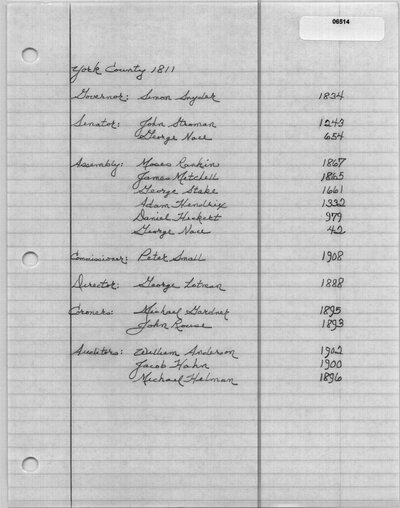 06514
York County 1811
Governor: Simon Snyder 1834
Senator: John Stroman 1243
George Nace 654
Assembly: Moses Rankin 1867
James Mitchell 1865
George Stake 1661
Adam Hendrix 1332
Daniel Heckert 979
George Nace 42
Commissioner: Peter Small 1908
Director: George Lotman 1888
Croners: Michael Gardner 1895
John Rouse 1893
Auditors: William Anderson 1902
Jacob Hahn 1900
Michael Helman 1896